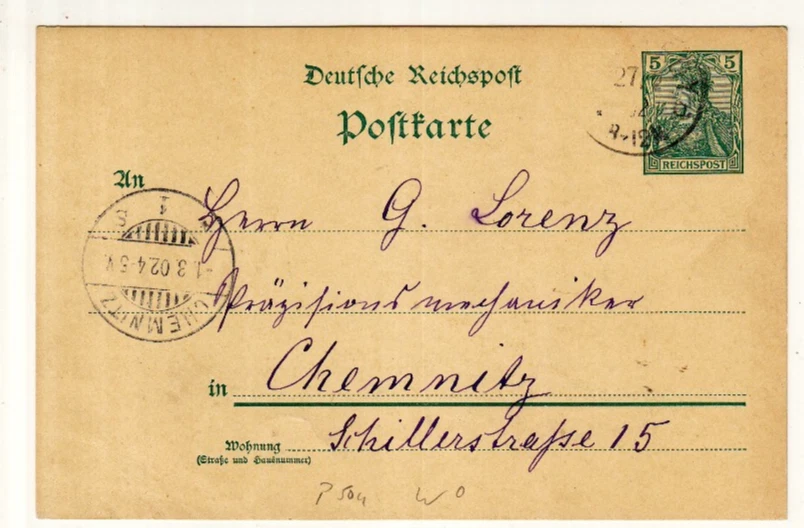 Deutsche Reichspost
Postkarte
5 5
REICHSPOST
27
8-12V
An
Herrn G. Lorenz
Präzisionsmechaniker
in Chemnitz
Wohnung Schillerstraße 15
(Straße und Hausnummer)
CHEMNITZ
1
-1.3.02.4-5V.
S
P 50y W 0